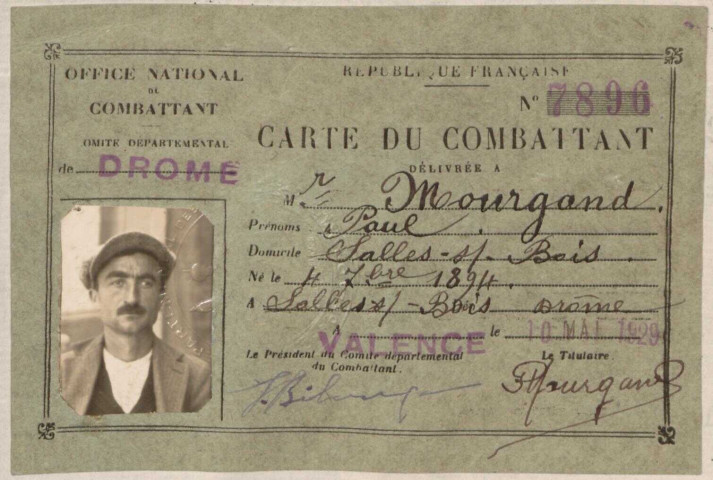 OFFICE NATIONAL
DU
COMBATTANT
OMITE DEPARTEMENTAL
de DROME
REPUBLIQUE FRANÇAISE
N° 7896
CARTE DU COMBATTANT
DÉLIVRÉE A
M r Mourgand.
Prénoms : Paul.
Domicile Salles-s/-Bois.
Né le 4 7bre 1894.
A Salles-s/-Bois Drome
A VALENCE le 10 MAI 1929
Le Président du Comité départemental
du Combattant.
Le Titulaire.
Mourgand